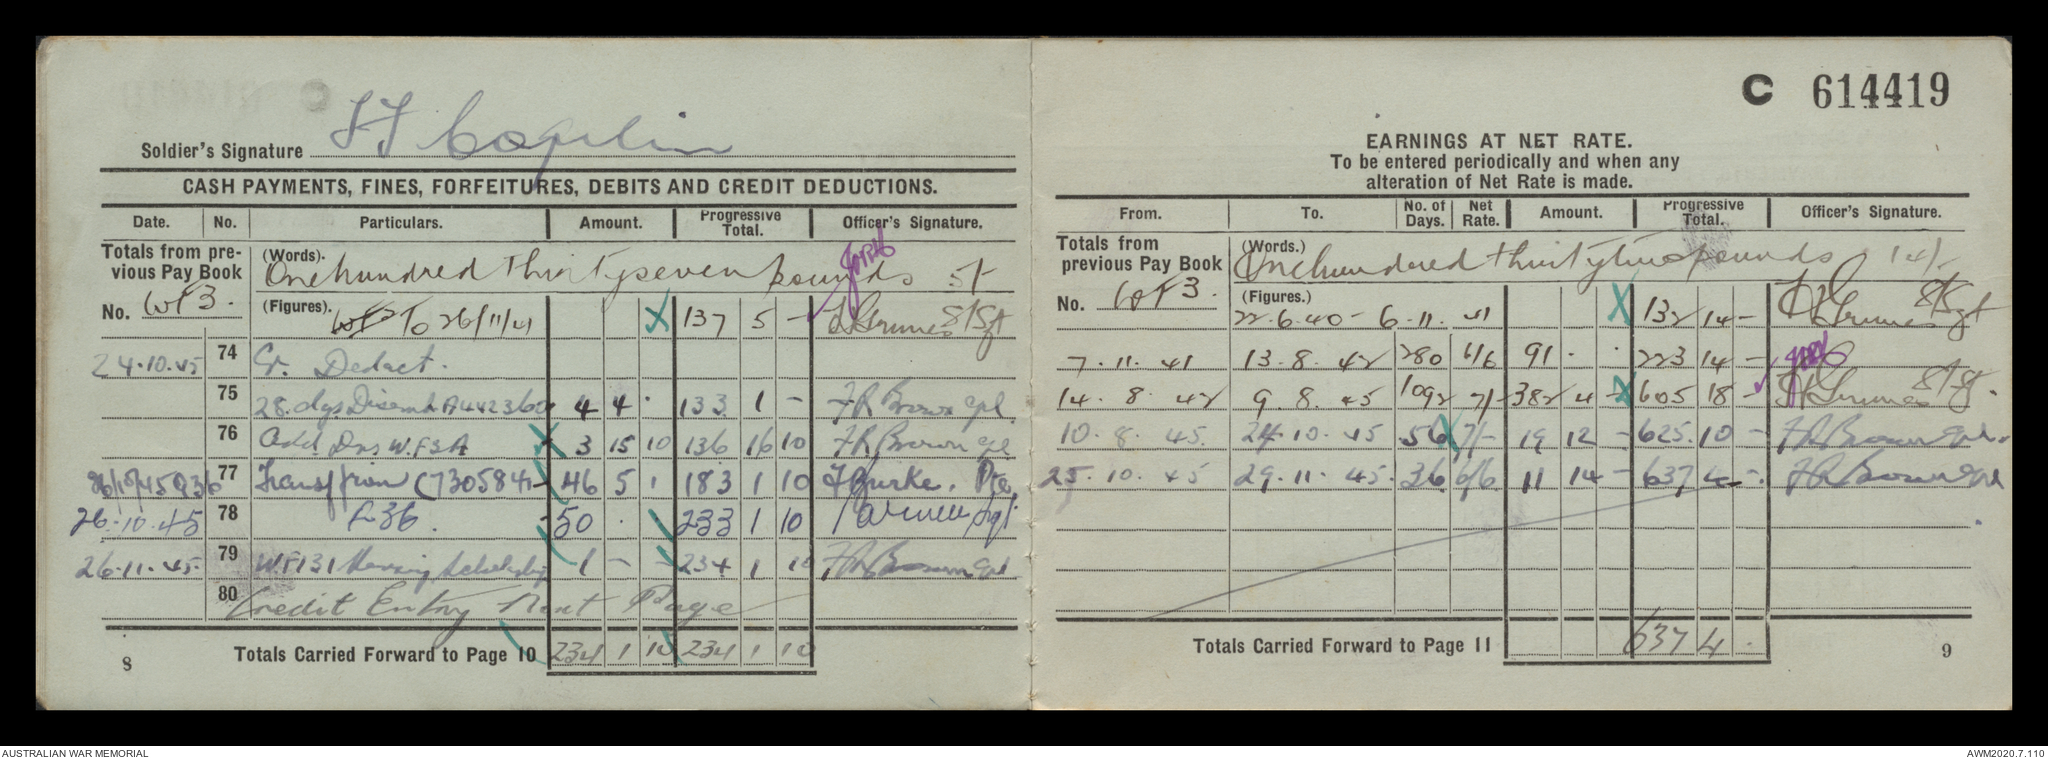 Soldier's Signature
CASH PAYMENTS, FINES, FORFEITURES, DEBITS AND CREDIT DEDUCTIONS.
Date. No. Particulars. Amount. Progressive Total. Officer's Signature.
Totals from previous Pay Book (Words). One hundred thirty seven pounds 5/-
No. WF3. (Figures). To 26/11/41 137 5 -
24.10.45 74 Cr. Deduct.
75 28. dys A442360 4 4 133 1 - FR Brown Cpl
76 Add Das W.F3A 3 15 10 136 16 10 FR Brown Cpl
77 (730584) 46 5 1 183 1 10 F Burke. Pte
26.10.45 78 50 233 1 10
26.11.45 79 WF131 1 - - 234 1 10 FR Brown Cpl
80 Credit Entry Next Page
Totals Carried Forward to Page 10 234 1 10 234 1 10
8
C 614419
EARNINGS AT NET RATE.
To be entered periodically and when any
alteration of Net Rate is made.
From. To. No. of Days. Net Rate. Amount. Progressive Total. Officer's Signature.
Totals from previous Pay Book (Words.) One hundered thirty two pounds 14/-
No. WF3. (Figures.) 22.6.40 - 6.11.41 132 14 - S/Sgt
7.11.41 13.8.42 280 6/6 91 . . 223 14 -
14.8.42 9.8.45 1092 7/- 382 4 - 605 18 - S/Sgt.
10.8.45. 24.10.45 56 7/- 19 12 - 625. 10 - FR Brown Cpl.
25.10.45 29.11.45. 36 6/6 11 14 - 637 4 - FR Brown Cpl
Totals Carried Forward to Page 11 637 4 .
9
AUSTRALIAN WAR MEMORIAL
AWM2020.7.110